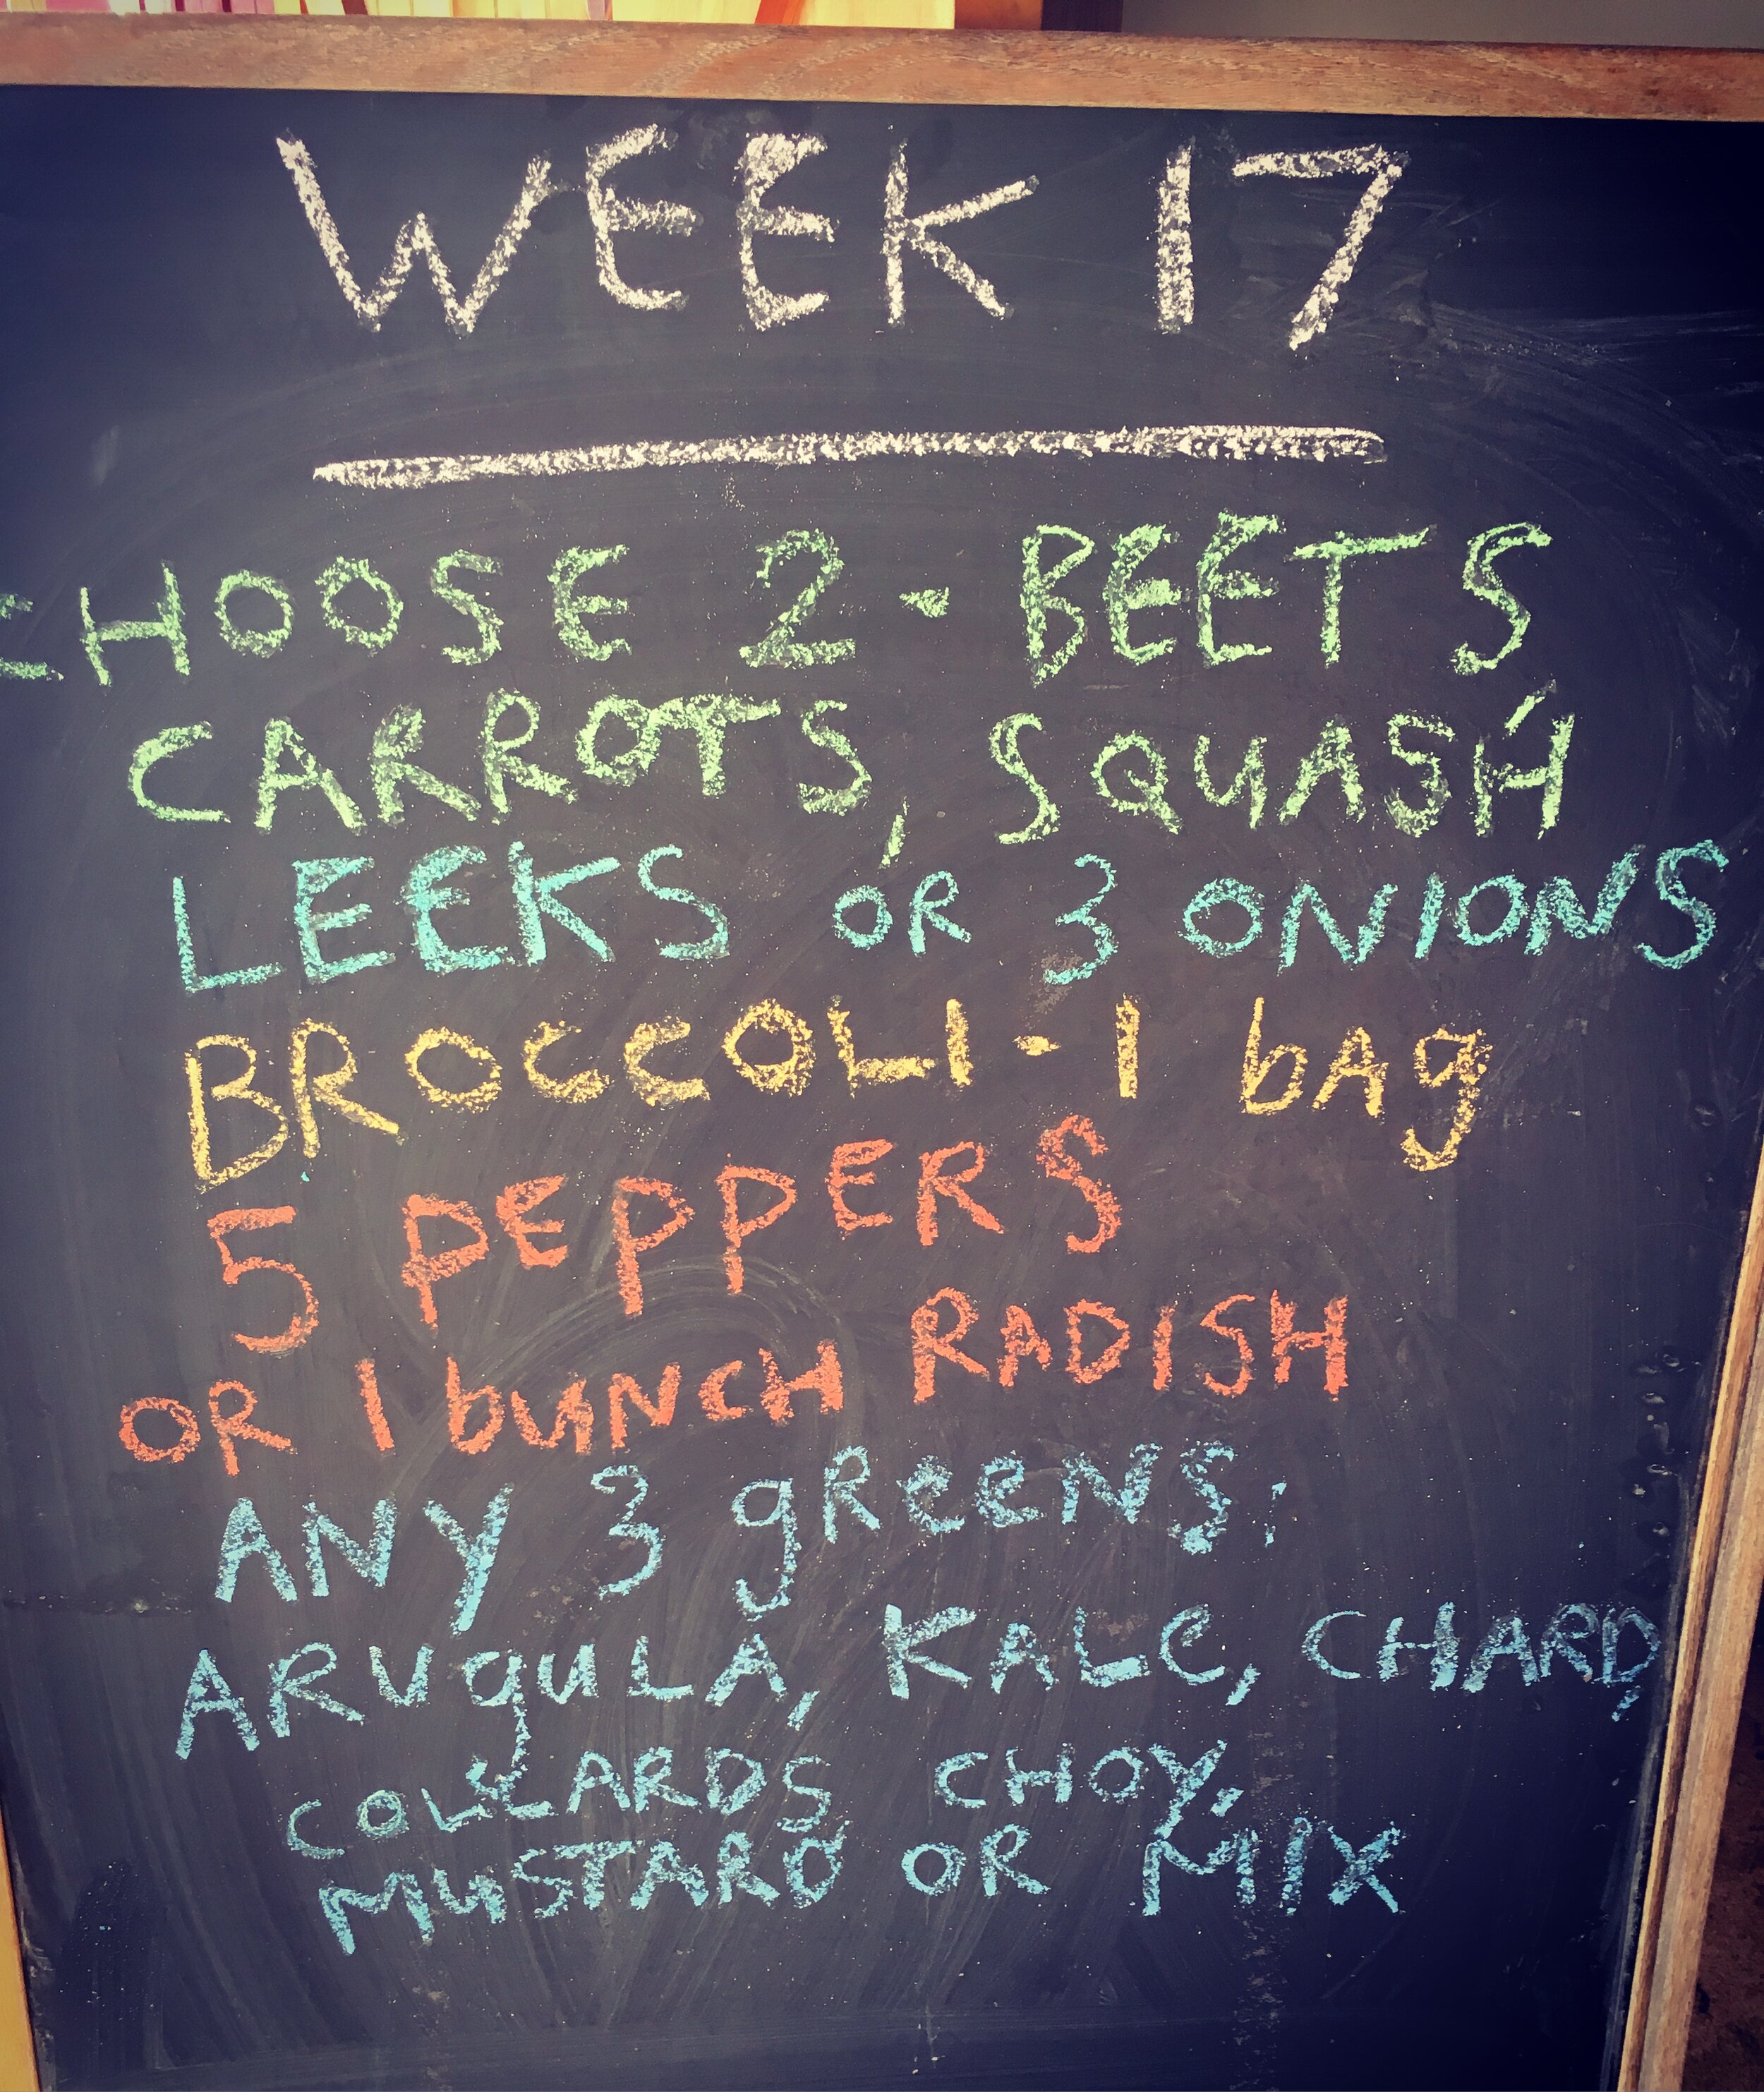 WEEK 17
CHOOSE 2 - BEETS,
CARROTS, SQUASH
LEEKS OR 3 ONIONS
BROCCOLI - 1 bAg
5 PEPPERS
OR 1 bUNCH RADISH
ANY 3 gReeNS:
ARUgULA, KALE, CHARD,
COLLARDS CHOY,
MUSTARD OR MIX